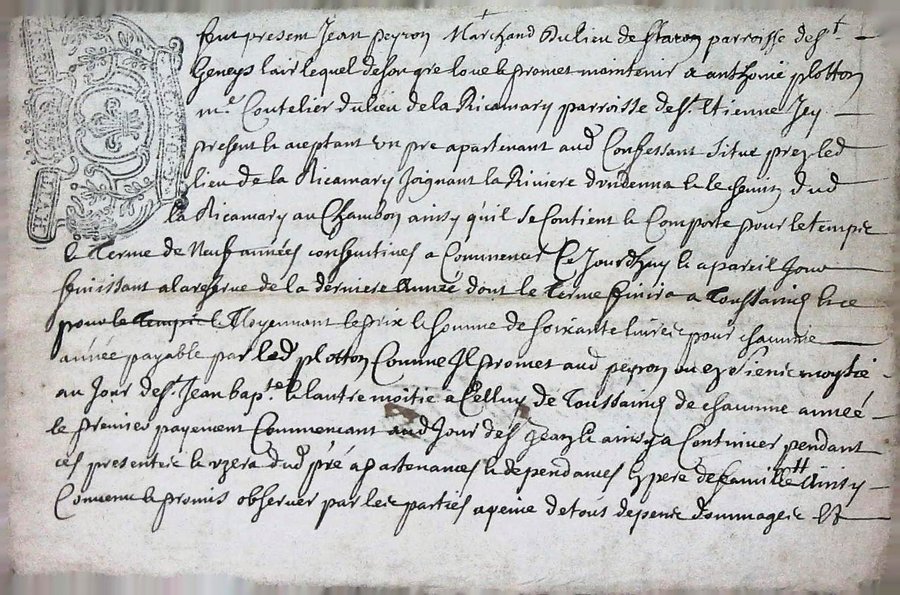 fut present Jean Peyron Marchand du lieu de parroisse de st
Geneys lair lequel de son gre loue et promet maintenir a anthoine plotton
me Coutelier du lieu de la Ricamary parroisse de st. Etienne Jcy
present et aceptant un pre apartenant aud Confessant Situe prez led
lieu de la Ricamary Joignant la Riviere dondenna et le chemin dud
la Ricamary au Chambon ainsy quil se Contient et Comporte pour le temps
et Terme de Neuf années consecutives a Commencer Ce Jourdhuy et a pareil Jour
finissant a la reserve de la derniere Année dont le Terme finira a Toussainct
pour le temps et Moyennant le prix et somme de soixante livres pour chacune
année payable par led plotton Comme Il promet aud peyron ou es siens moytié
au Jour de st. Jean bapte et lautre moitié a Celluy de Toussainct de chacune année
le premier payement Commencant aud Jour de st Jean et ainsy a Continuer pendant
ces presentes et uzera dud pré apartenances et dependances En pere de famille Ainsy
Convenu et promis observer par les parties a peine de tous depens dommages et